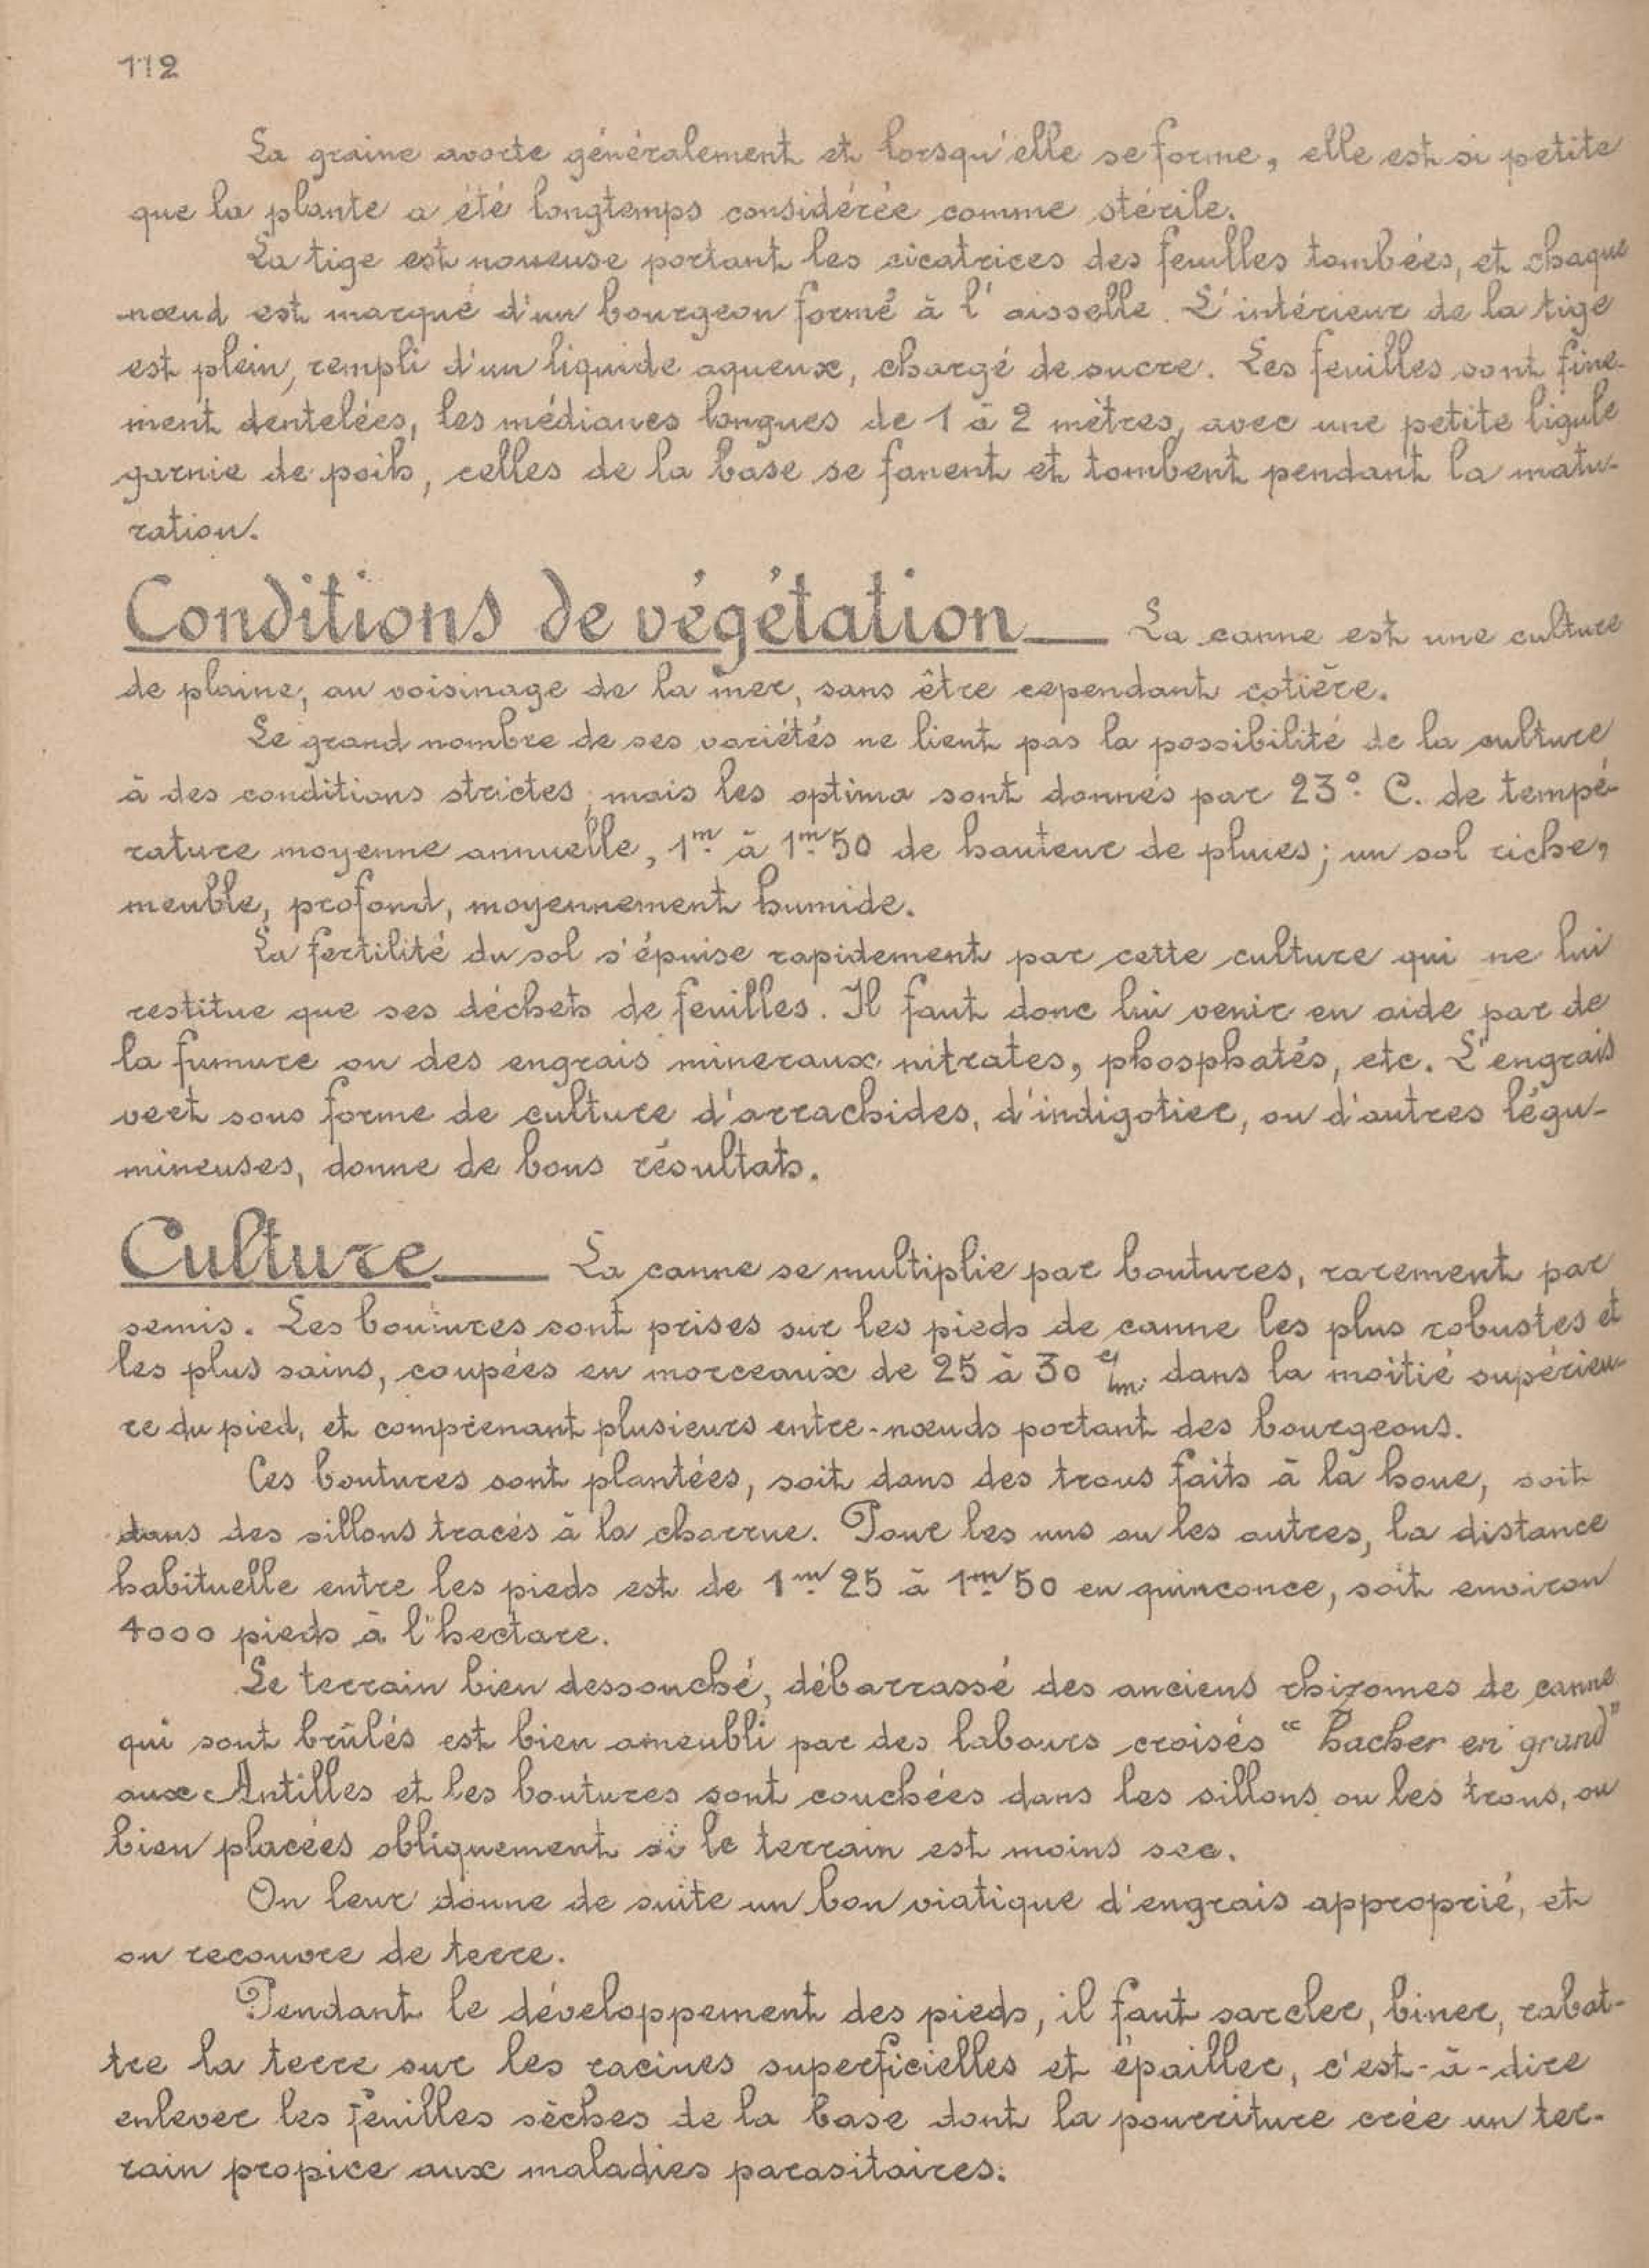 112
La graine avorte généralement et lorsqu'elle se forme, elle est si petite
que la plante a été longtemps considérée comme stérile.
La tige est noueuse portant les cicatrices des feuilles tombées, et chaque
nœud est marqué d'un bourgeon formé à l'aisselle. L'intérieur de la tige
est plein, rempli d'un liquide aqueux, chargé de sucre. Les feuilles sont fine-
ment dentelées, les médianes longues de 1 à 2 mètres, avec une petite ligule
garnie de poils, celles de la base se fanent et tombent pendant la matu-
ration.
Conditions de végétation — La canne est une culture
de plaine, au voisinage de la mer, sans être cependant cotière.
Le grand nombre de ses variétés ne lient pas la possibilité de la culture
à des conditions strictes, mais les optima sont donnés par 23° C. de tempé-
rature moyenne annuelle, 1m. à 1m.50 de hauteur de pluies; un sol riche,
meuble, profond, moyennement humide.
La fertilité du sol s'épuise rapidement par cette culture qui ne lui
restitue que ses déchets de feuilles. Il faut donc lui venir en aide par de
la fumure ou des engrais mineraux nitrates, phosphatés, etc. L'engrais
vert sous forme de culture d'arrachides, d'indigotier, ou d'autres légu-
mineuses, donne de bons résultats.
Culture — La canne se multiplie par boutures, rarement par
semis. Les boutures sont prises sur les pieds de canne les plus robustes et
les plus sains, coupées en morceaux de 25 à 30 c/m. dans la moitié supérieu-
re du pied, et comprenant plusieurs entre-nœuds portant des bourgeons.
Ces boutures sont plantées, soit dans des trous faits à la houe, soit
dans des sillons tracés à la charrue. Pour les uns ou les autres, la distance
habituelle entre les pieds est de 1m.25 à 1m.50 en quinconce, soit environ
4000 pieds à l'hectare.
Le terrain bien dessouché, débarrassé des anciens rhizomes de canne
qui sont brûlés est bien ameubli par des labours croisés "hacher en grand"
aux Antilles et les boutures sont couchées dans les sillons ou les trous, ou
bien placées obliquement si le terrain est moins sec.
On leur donne de suite un bon viatique d'engrais approprié, et
on recouvre de terre.
Pendant le développement des pieds, il faut sarcler, biner, rabat-
tre la terre sur les racines superficielles et épailler, c'est-à-dire
enlever les feuilles sèches de la base dont la pourriture crée un ter-
rain propice aux maladies parasitaires.